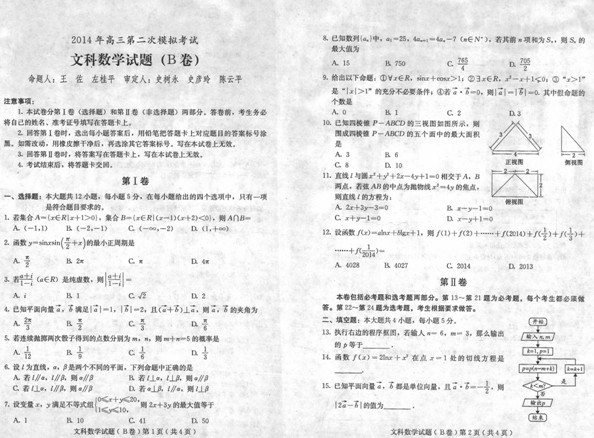 2014年高三第二次模拟考试
文科数学试题(B卷)
命题人:王 佐 左桂平 审定人:史树永 史彦玲 陈云平
注意事项:
1.本试卷分第Ⅰ卷(选择题)和第Ⅱ卷(非选择题)两部分。答卷前,考生务必
将自己的姓名、准考证号填写在答题卡上。
2.回答第Ⅰ卷时,选出每小题答案后,用铅笔把答题卡上对应题目的答案标号涂
黑。如需改动,用橡皮擦干净后,再选涂其它答案标号。写在本试卷上无效。
3.回答第Ⅱ卷时,将答案写在答题卡上,写在本试卷上无效。
4.考试结束后,将答题卡交回。
第Ⅰ卷
一、选择题:本大题共12小题,每小题5分,在每小题给出的四个选项中,只有一项
是符合题目要求的。
1.若集合A={x∈R|x+1>0},集合B={x∈R|(x-1)(x+2)<0},则A∩B=
A.(-1,1) B.(-2,-1) C.(-∞,-2) D.(1,+∞)
2.函数y=sinxsin(π/2+x)的最小正周期是
A.π/2 B.2π C.π D.4π
3.若(a+i)/(1-i)(a∈R)是纯虚数,则|(a+i)/(1-i)|=
A.i B.1 C.√2 D.2
4.已知平面向量a,b满足|a|=1,|b|=2,且(a+b)⊥a,则a,b的夹角为
A.2π/3 B.π/2 C.π/3 D.π/6
5.若连续抛掷两次骰子得到的点数分别为m,n,则m+n=5的概率是
A.1/12 B.1/9 C.1/6 D.1/3
6.设l为直线,α,β是两个不同的平面,下列命题中正确的是
A.若l∥α,l∥β,则α∥β B.若l⊥α,l⊥β,则α∥β
C.若l⊥α,l∥β,则α∥β D.若α⊥β,l∥α,则l⊥β
7.设变量x,y满足不等式组{0≤x+y≤20, 则2x+3y的最大值等于
A.1 B.10 C.41 D.50
文科数学试题(B卷)第1页(共4页)
8.已知数列{aₙ}中,a₁=25,4aₙ₊₁=4aₙ-7(n∈N*),若其前n项和为Sₙ,则Sₙ的
最大值为
A.15 B.750 C.765/4 D.705/2
9.给出以下命题:①∀x∈R,sinx+cosx>1;②∃x∈R,x²-x+1≤0;③"x>1"
是"|x|>1"的充分不必要条件;④若a·b=0,则|a|=|b|=0.其中假命题的
个数是
A.0 B.1 C.2 D.3
10.已知四棱锥P-ABCD的三视图如图所示,则
围成四棱锥P-ABCD的五个面中的最大面积
是
A.3 B.6
C.8 D.10
4
正视图
2
侧视图
2
2
俯视图
11.直线l与圆x²+y²+2x-4y+1=0相交于A,B
两点,若弦AB的中点为抛物线x²=4y的焦点,
则直线l的方程为
A.2x+3y-3=0 B.x-y-1=0
C.x+y-1=0 D.x-y+1=0
12.设函数f(x)=alnx+blgx+1,则f(1)+f(2)+……+f(2014)+f(1/2)+f(1/3)+
……+f(1/2014)=
A.4028 B.4027 C.2014 D.2013
第Ⅱ卷
本卷包括必考题和选考题两部分。第13～第21题为必考题,每个考生都必须做
答。第22～第24题为选考题,考生根据要求做答。
二、填空题:本大题共4小题,每小题5分。
13.执行右边的程序框图,若输入n=6,m=3,那么输出
的p等于______.
14.函数f(x)=2lnx+x²在点x=1处的切线方程是
______.
15.已知平面向量a,b都是单位向量,且a·b=-1/2,则
|2a-b|的值为______.
开始
输入n,m
k=1,p=1
p=p(n-m+k)
k=k+1
k<m?
是
否
输出p
结束
文科数学试题(B卷)第2页(共4页)